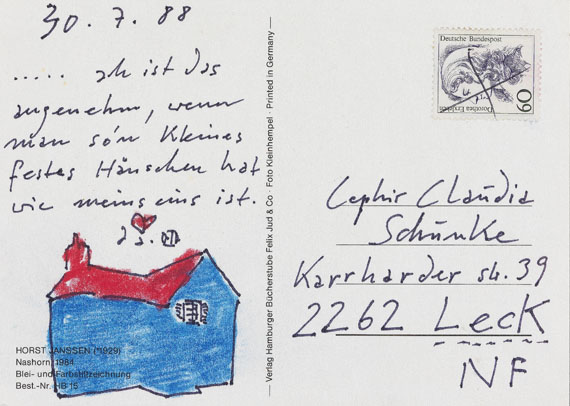 30.7.88
..... ah ist das
angenehm, wenn
man so'n kleines
festes Häuschen hat
wie meins eins ist.
HORST JANSSEN (*1929)
Nashorn, 1984
Blei- und Farbstiftzeichnung
Best.-Nr. HB 15
Verlag Hamburger Bücherstube Felix Jud & Co · Foto Kleinhempel · Printed in Germany
Deutsche Bundespost
60
Dorothea Erxleben
Claudia
Schünke
Karrharder str. 39
2262 Leck
NF